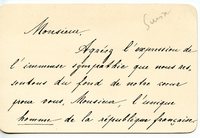 Monsieur,
Agréez l'expression de
l'immense sympathie que nous res-
sentons du fond de notre cœur
pour vous, Monsieur, l'unique
homme de la république française